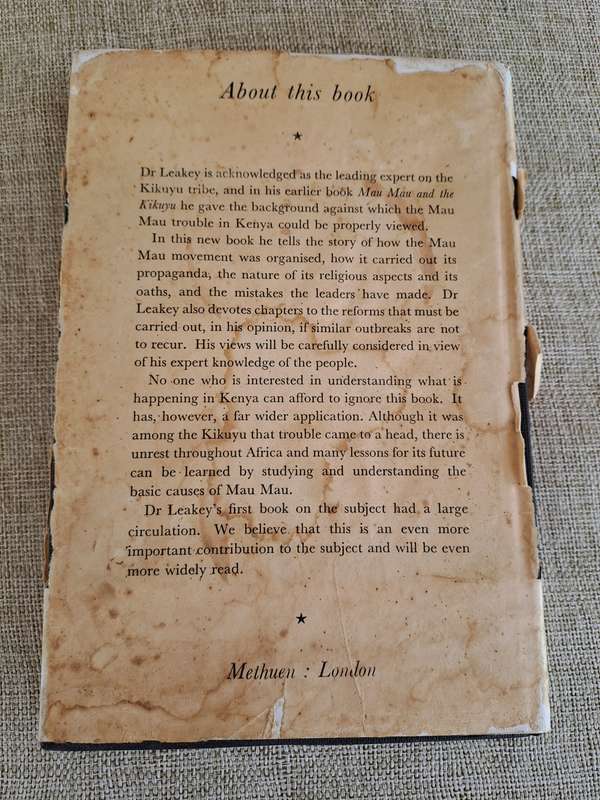 About this book
★
Dr Leakey is acknowledged as the leading expert on the
Kikuyu tribe, and in his earlier book Mau Mau and the
Kikuyu he gave the background against which the Mau
Mau trouble in Kenya could be properly viewed.
In this new book he tells the story of how the Mau
Mau movement was organised, how it carried out its
propaganda, the nature of its religious aspects and its
oaths, and the mistakes the leaders have made. Dr
Leakey also devotes chapters to the reforms that must be
carried out, in his opinion, if similar outbreaks are not
to recur. His views will be carefully considered in view
of his expert knowledge of the people.
No one who is interested in understanding what is
happening in Kenya can afford to ignore this book. It
has, however, a far wider application. Although it was
among the Kikuyu that trouble came to a head, there is
unrest throughout Africa and many lessons for its future
can be learned by studying and understanding the
basic causes of Mau Mau.
Dr Leakey's first book on the subject had a large
circulation. We believe that this is an even more
important contribution to the subject and will be even
more widely read.
★
Methuen : London